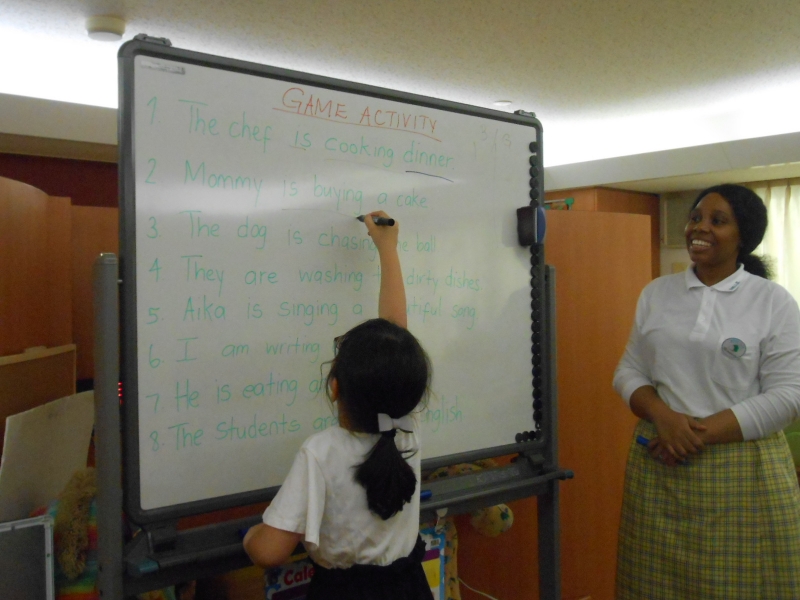 GAME ACTIVITY
1 The chef is cooking dinner.
2 Mommy is buying a cake
3. The dog is chasing the ball
4. They are washing dirty dishes
5. Aika is singing a song
6 I am writing
7. He is eating
8. The Students are English
Cale